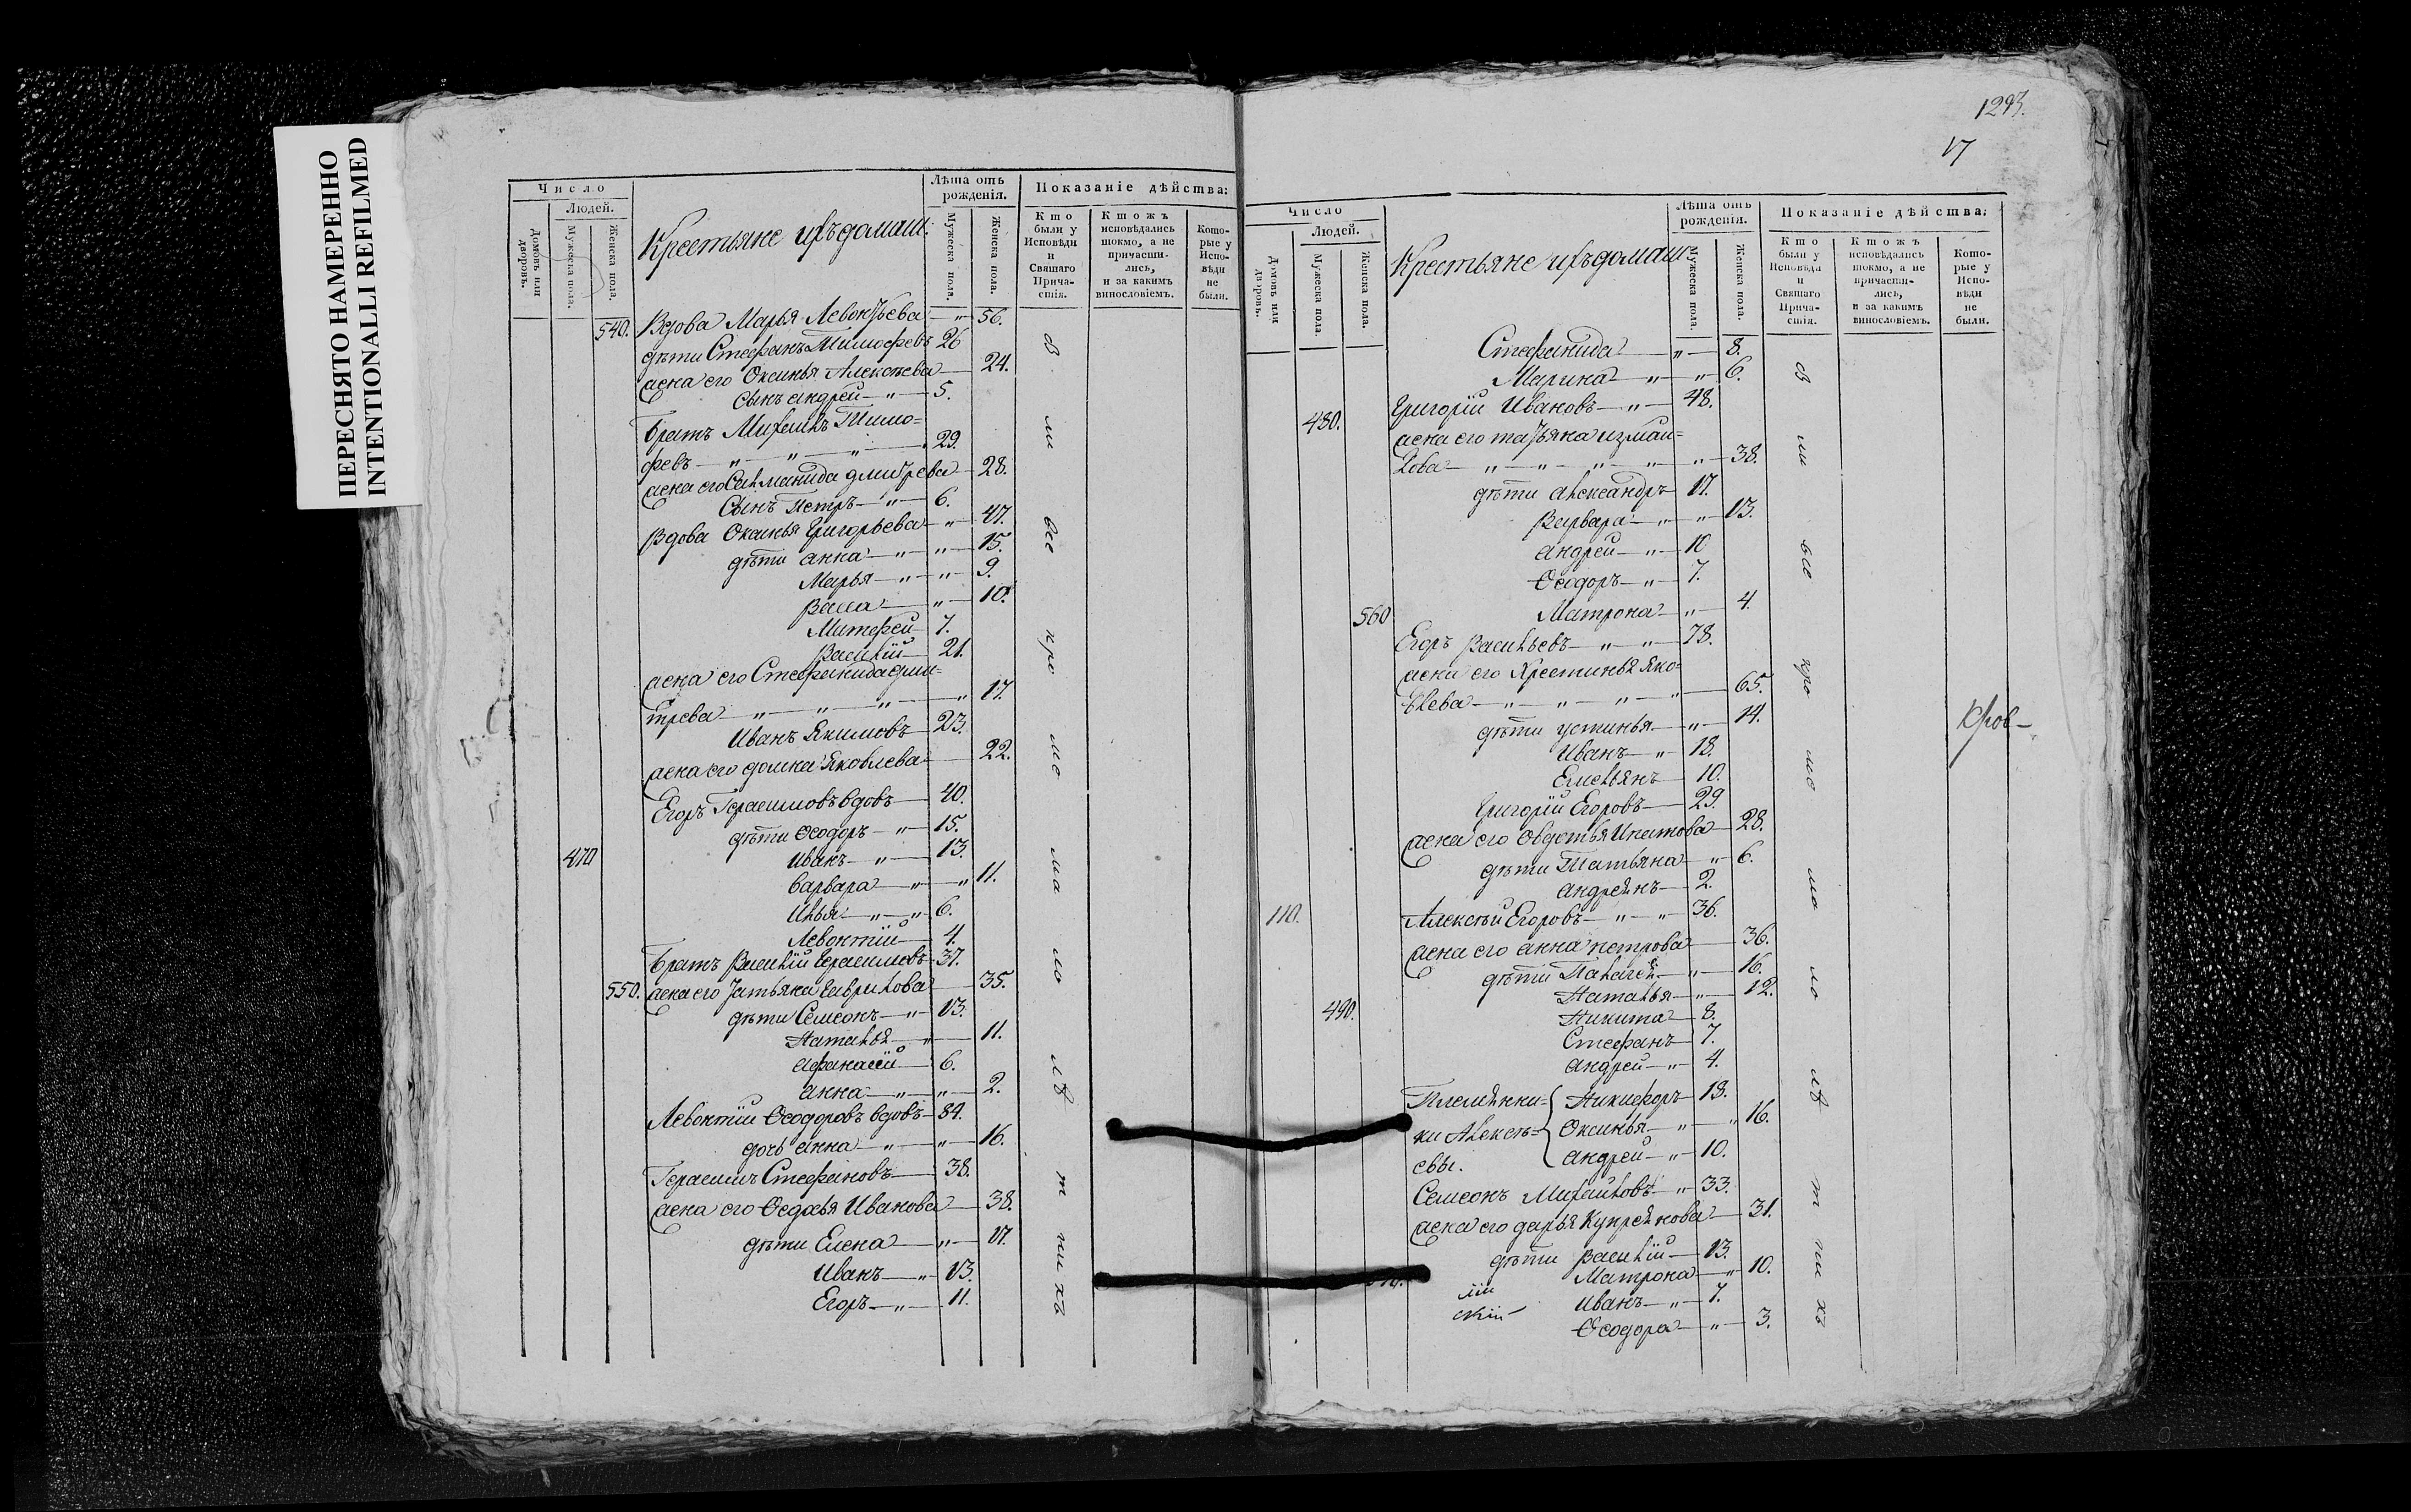 ПЕРЕСНЯТО НАМЕРЕННО
INTENTIONALLI REFILMED
Число
Людей.
Домовъ или дворовъ.
Мужеска пола.
Женска пола.
Крестьяне ихъ домаш:
Лѣта отъ рожденія.
Мужеска пола.
Женска пола.
Показаніе дѣйства:
Кто были у Исповѣди и Святаго Причастія.
Ктожъ исповѣдались токмо, а не причастились, и за какимъ винословіемъ.
Которые у Исповѣди не были.
540. Вдова Марья Левонтьева — „ — 56.
дѣти Стефанъ Тимофевъ 26
жена его Оксинья Алексѣева — 24.
Сынъ андрей — „ — 5.
братъ Михаилъ Тимо=
февъ — „ — „ — „ — 29.
жена его Салманида дмитрева — 28.
Сынъ Петръ — „ — 6.
Вдова Оксинья Григорьева — „ — 47.
дѣти анна — „ — „ — 15.
Марья — „ — „ — 9.
Васса — „ — 10.
Матфей 7.
Василій — 21.
жена его Стефанида дми=
трева — „ — „ — „ — „ 17.
Иванъ Якимовъ — 23.
жена его домна Яковлева — 22.
Егоръ Герасимовъ вдовъ — 40.
дѣти Ѳеодоръ — „ — 15.
470 Иванъ — „ — 13.
варвара — „ — „ 11.
Илья — „ — „ 6.
Левонтій — 4.
братъ Василій Герасимовъ — 37.
550. жена его Татьяна Гаврилова — 35.
дѣти Семеонъ — „ — 13.
Наталья — „ — 11.
афанасій — 6.
анна — „ — „ — 2.
Левонтій Ѳеодоровъ вдовъ — 84.
дочь анна — „ — „ — 16.
Герасимъ Стефановъ — 38.
жена его Ѳедосья Иванова — 38.
дѣти Елена — „ — 17.
Иванъ — „ — 13.
Егоръ — „ — 11.
1293.
17
Число
Людей.
Домовъ или дворовъ.
Мужеска пола.
Женска пола.
Крестьяне ихъ домаш:
Лѣта отъ рожденія.
Мужеска пола.
Женска пола.
Показаніе дѣйства:
Кто были у Исповѣди и Святаго Причастія.
Ктожъ исповѣдались токмо, а не причастились, и за какимъ винословіемъ.
Которые у Исповѣди не были.
Стефанида — „ — 8.
Марина — „ — „ 6.
480. Григорій Ивановъ — „ — 48.
жена его татьяна измаи=
лова — „ — „ — „ — „ — „ — 38.
дѣти александръ 17.
Варвара — „ — „ — 13.
андрей — „ — 10
Ѳеодоръ — „ — 7.
560 Матрона — „ — 4.
Егоръ Васильевъ — „ — „ — 78.
жена его Хрестинья Яко=
влева — „ — „ — „ — „ — 65.
дѣти устинья — „ — 14.
Иванъ — „ — 18.
Емельянъ — 10.
Григорій Егоровъ — 29.
жена его Овдотья Ипатова — 28.
дѣти Татьяна — „ — 6.
андреянъ — 2.
110. Алексѣй Егоровъ — „ — „ — 36.
жена его анна петрова — 36.
дѣти Палагея — „ — 16.
Наталья — „ — 12.
490. Никита — 8.
Стефанъ — 7.
андрей — „ — 4.
Племянни= Никифоръ — 18.
ки Алексѣ= Оксинья — „ — „ 16.
евы. андрей — „ — 10.
Семеонъ Михайловъ — „ — 33.
жена его дарья Купреянова — 31.
дѣти Василій — 13.
Матрона — „ 10.
Иванъ — „ — 7.
Ѳеодора — „ — 3.